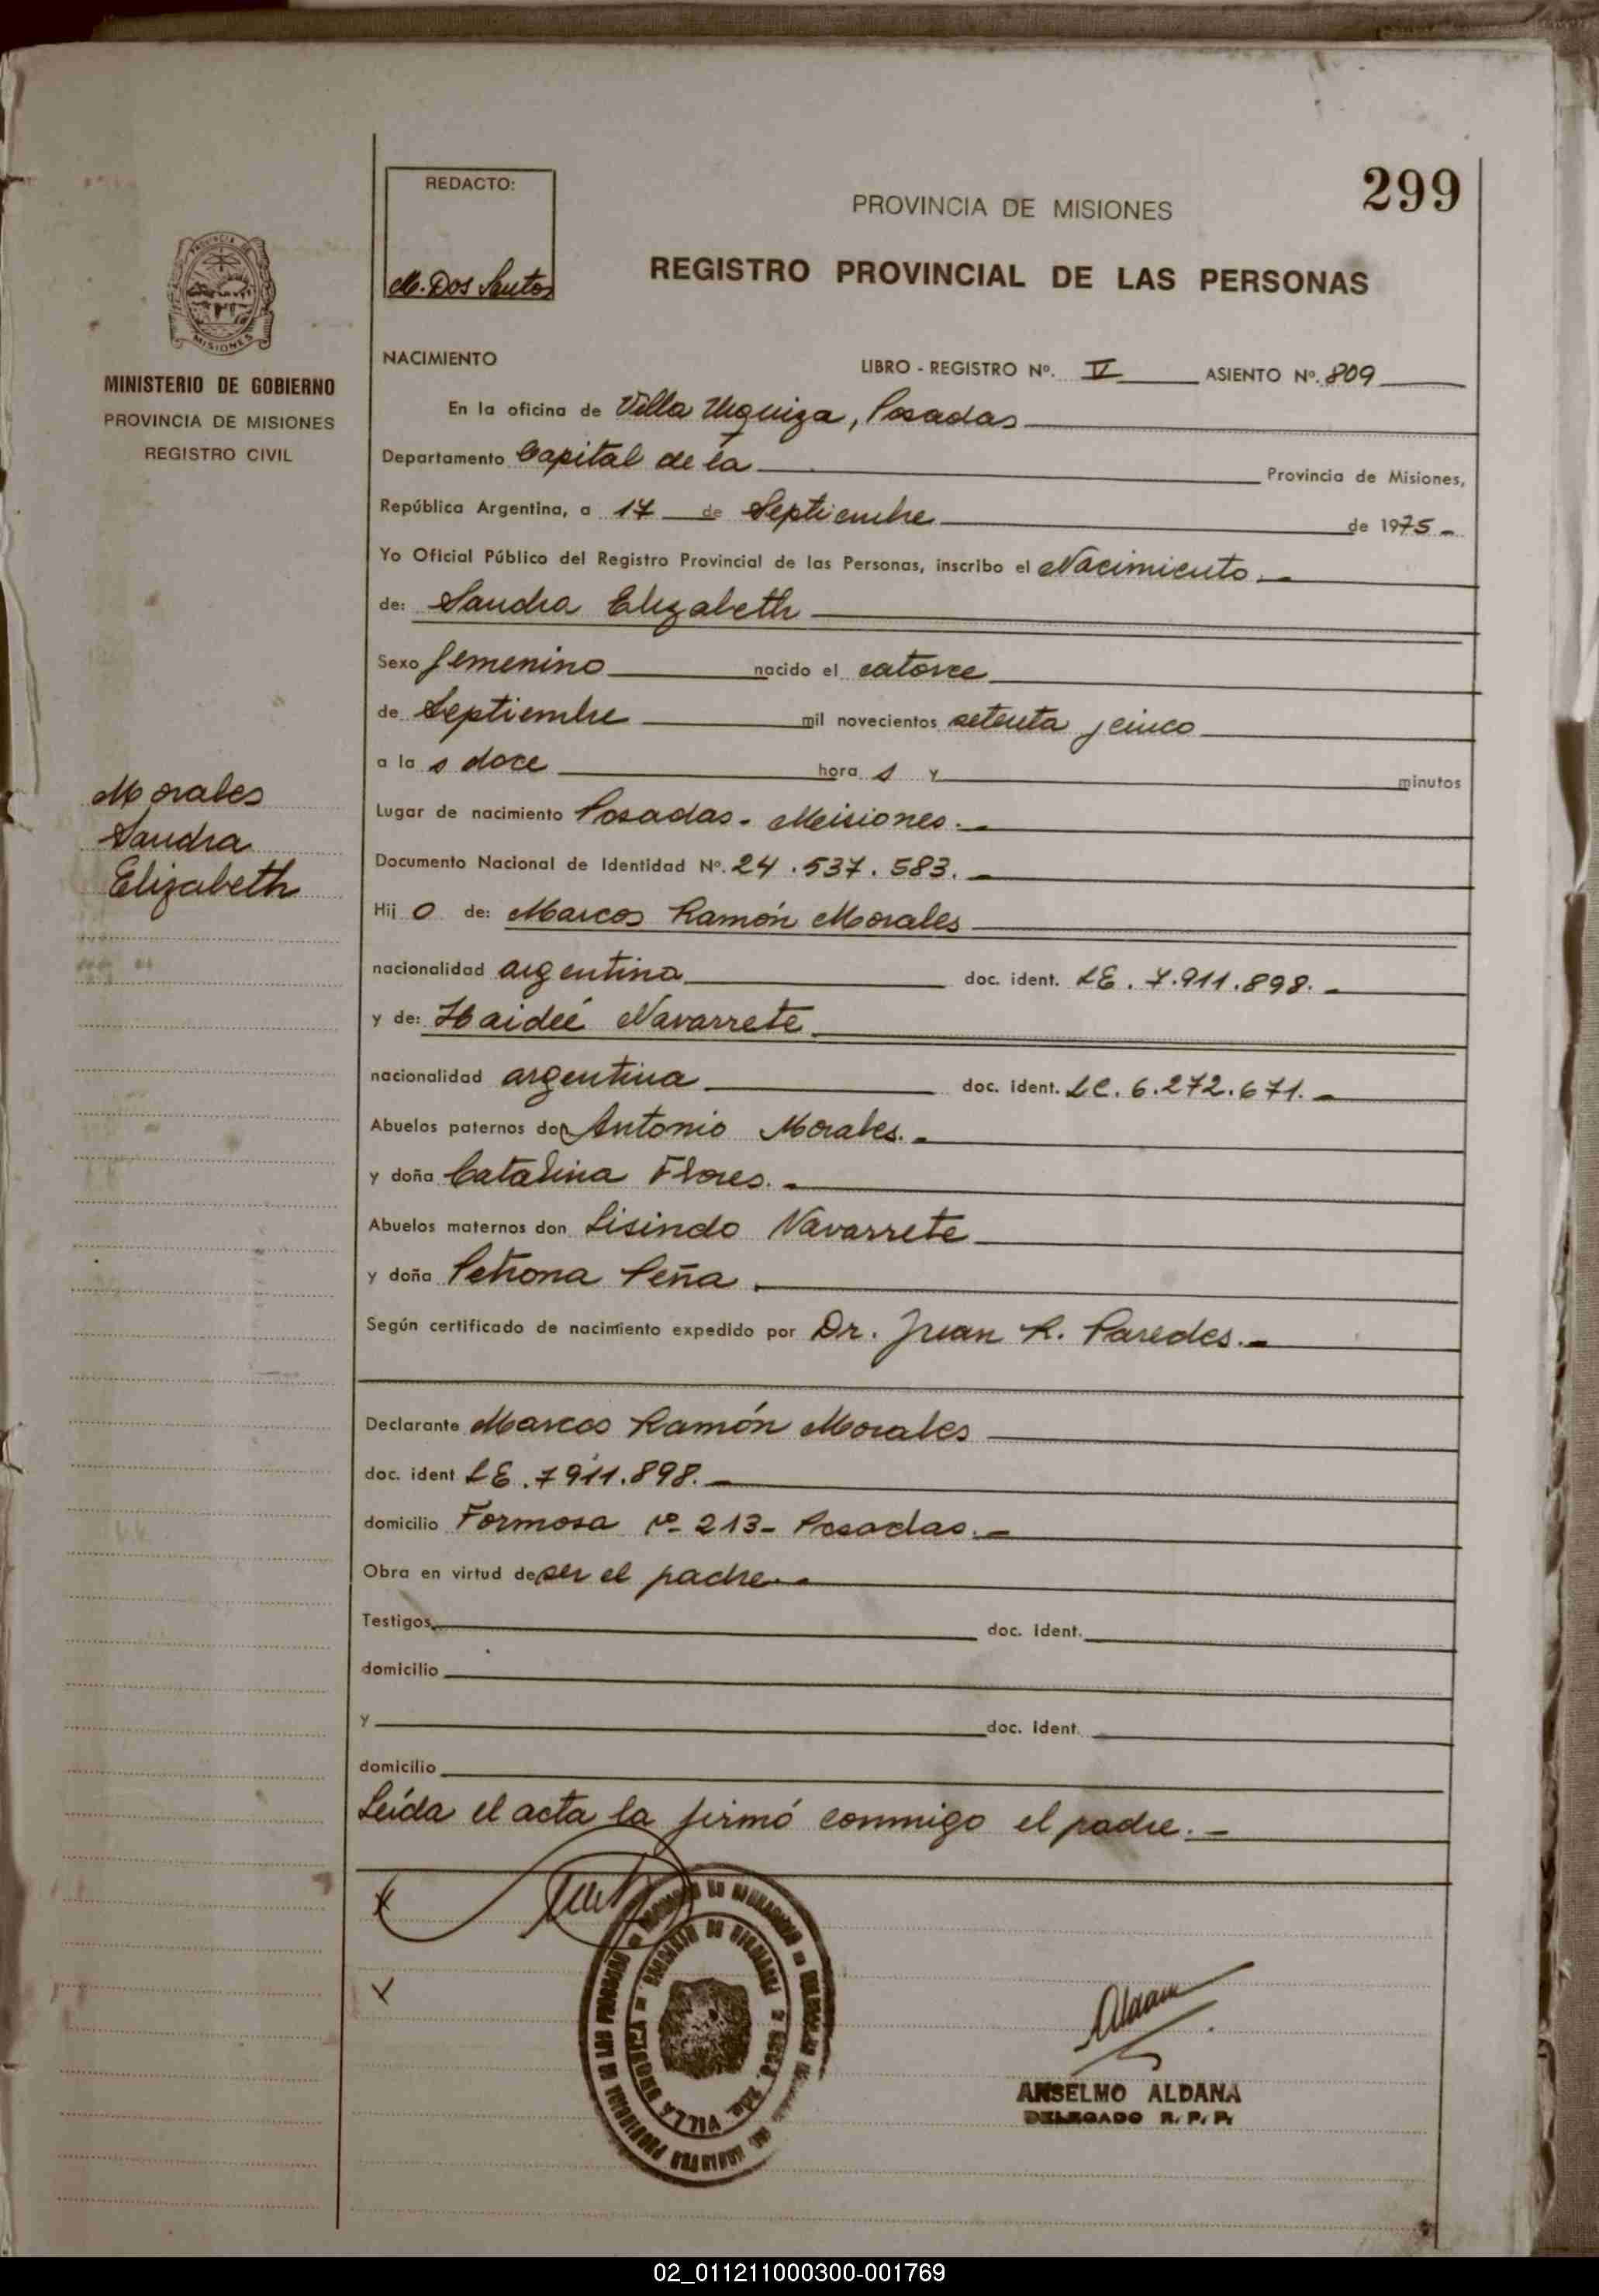 299
REDACTO:
M. Dos Santos
PROVINCIA DE MISIONES
REGISTRO PROVINCIAL DE LAS PERSONAS
PROVINCIA DE
MISIONES
MINISTERIO DE GOBIERNO
PROVINCIA DE MISIONES
REGISTRO CIVIL
Morales
Sandra
Elizabeth
NACIMIENTO LIBRO - REGISTRO Nº. V ASIENTO Nº. 809
En la oficina de Villa Urquiza, Posadas
Departamento Capital de la Provincia de Misiones,
República Argentina, a 17 de Septiembre de 1975 -
Yo Oficial Público del Registro Provincial de las Personas, inscribo el Nacimiento.-
de: Sandra Elizabeth
Sexo femenino nacido el catorce
de Septiembre mil novecientos setenta y cinco
a la s doce hora s y minutos
Lugar de nacimiento Posadas - Misiones.-
Documento Nacional de Identidad Nº. 24.537.583.-
Hij a de: Marcos Ramón Morales
nacionalidad argentina doc. ident. LE. 7.911.898.-
y de: Haideé Navarrete
nacionalidad argentina doc. ident. LC. 6.272.671.-
Abuelos paternos don Antonio Morales.-
y doña Catalina Flores.-
Abuelos maternos don Lisindo Navarrete
y doña Petrona Peña
Según certificado de nacimiento expedido por Dr. Juan R. Paredes.-
Declarante Marcos Ramón Morales
doc. ident LE. 7911.898.-
domicilio Formosa nº 213- Posadas.-
Obra en virtud de ser el padre.-
Testigos doc. ident.
domicilio
y doc. ident.
domicilio
Leída el acta la firmó conmigo el padre.-
VILLA URQUIZA
Aldana
ANSELMO ALDANA
DELEGADO R. P. P.
02_011211000300-001769